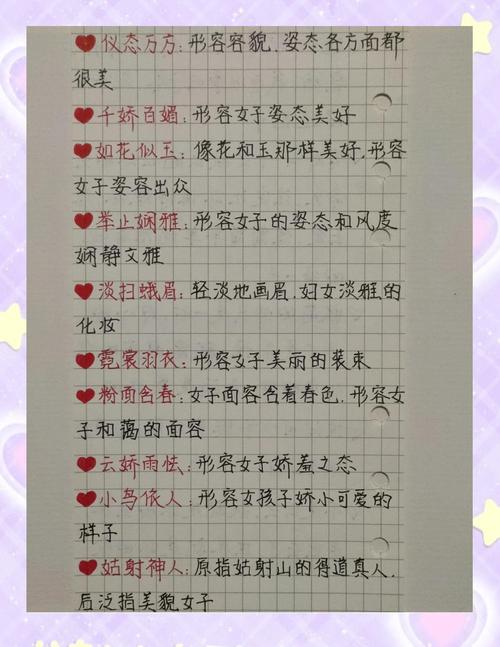 仪态万方:形容容貌,姿态各方面都
很美
千娇百媚:形容女子姿态美好
如花似玉:像花和玉那样美好,形容
女子姿容出众
举止娴雅:形容女子的姿态和风度
娴静文雅
淡扫蛾眉:轻淡地画眉.妇女淡雅的
化妆
霓裳羽衣:形容女子美丽的装束
粉面含春:女子面容含着春色,形容女
子和蔼的面容
云娇雨怯:形容女子娇羞之态
小鸟依人:形容女孩子娇小可爱的
样子
姑射神人:原指姑射山的得道真人,
后泛指美貌女子